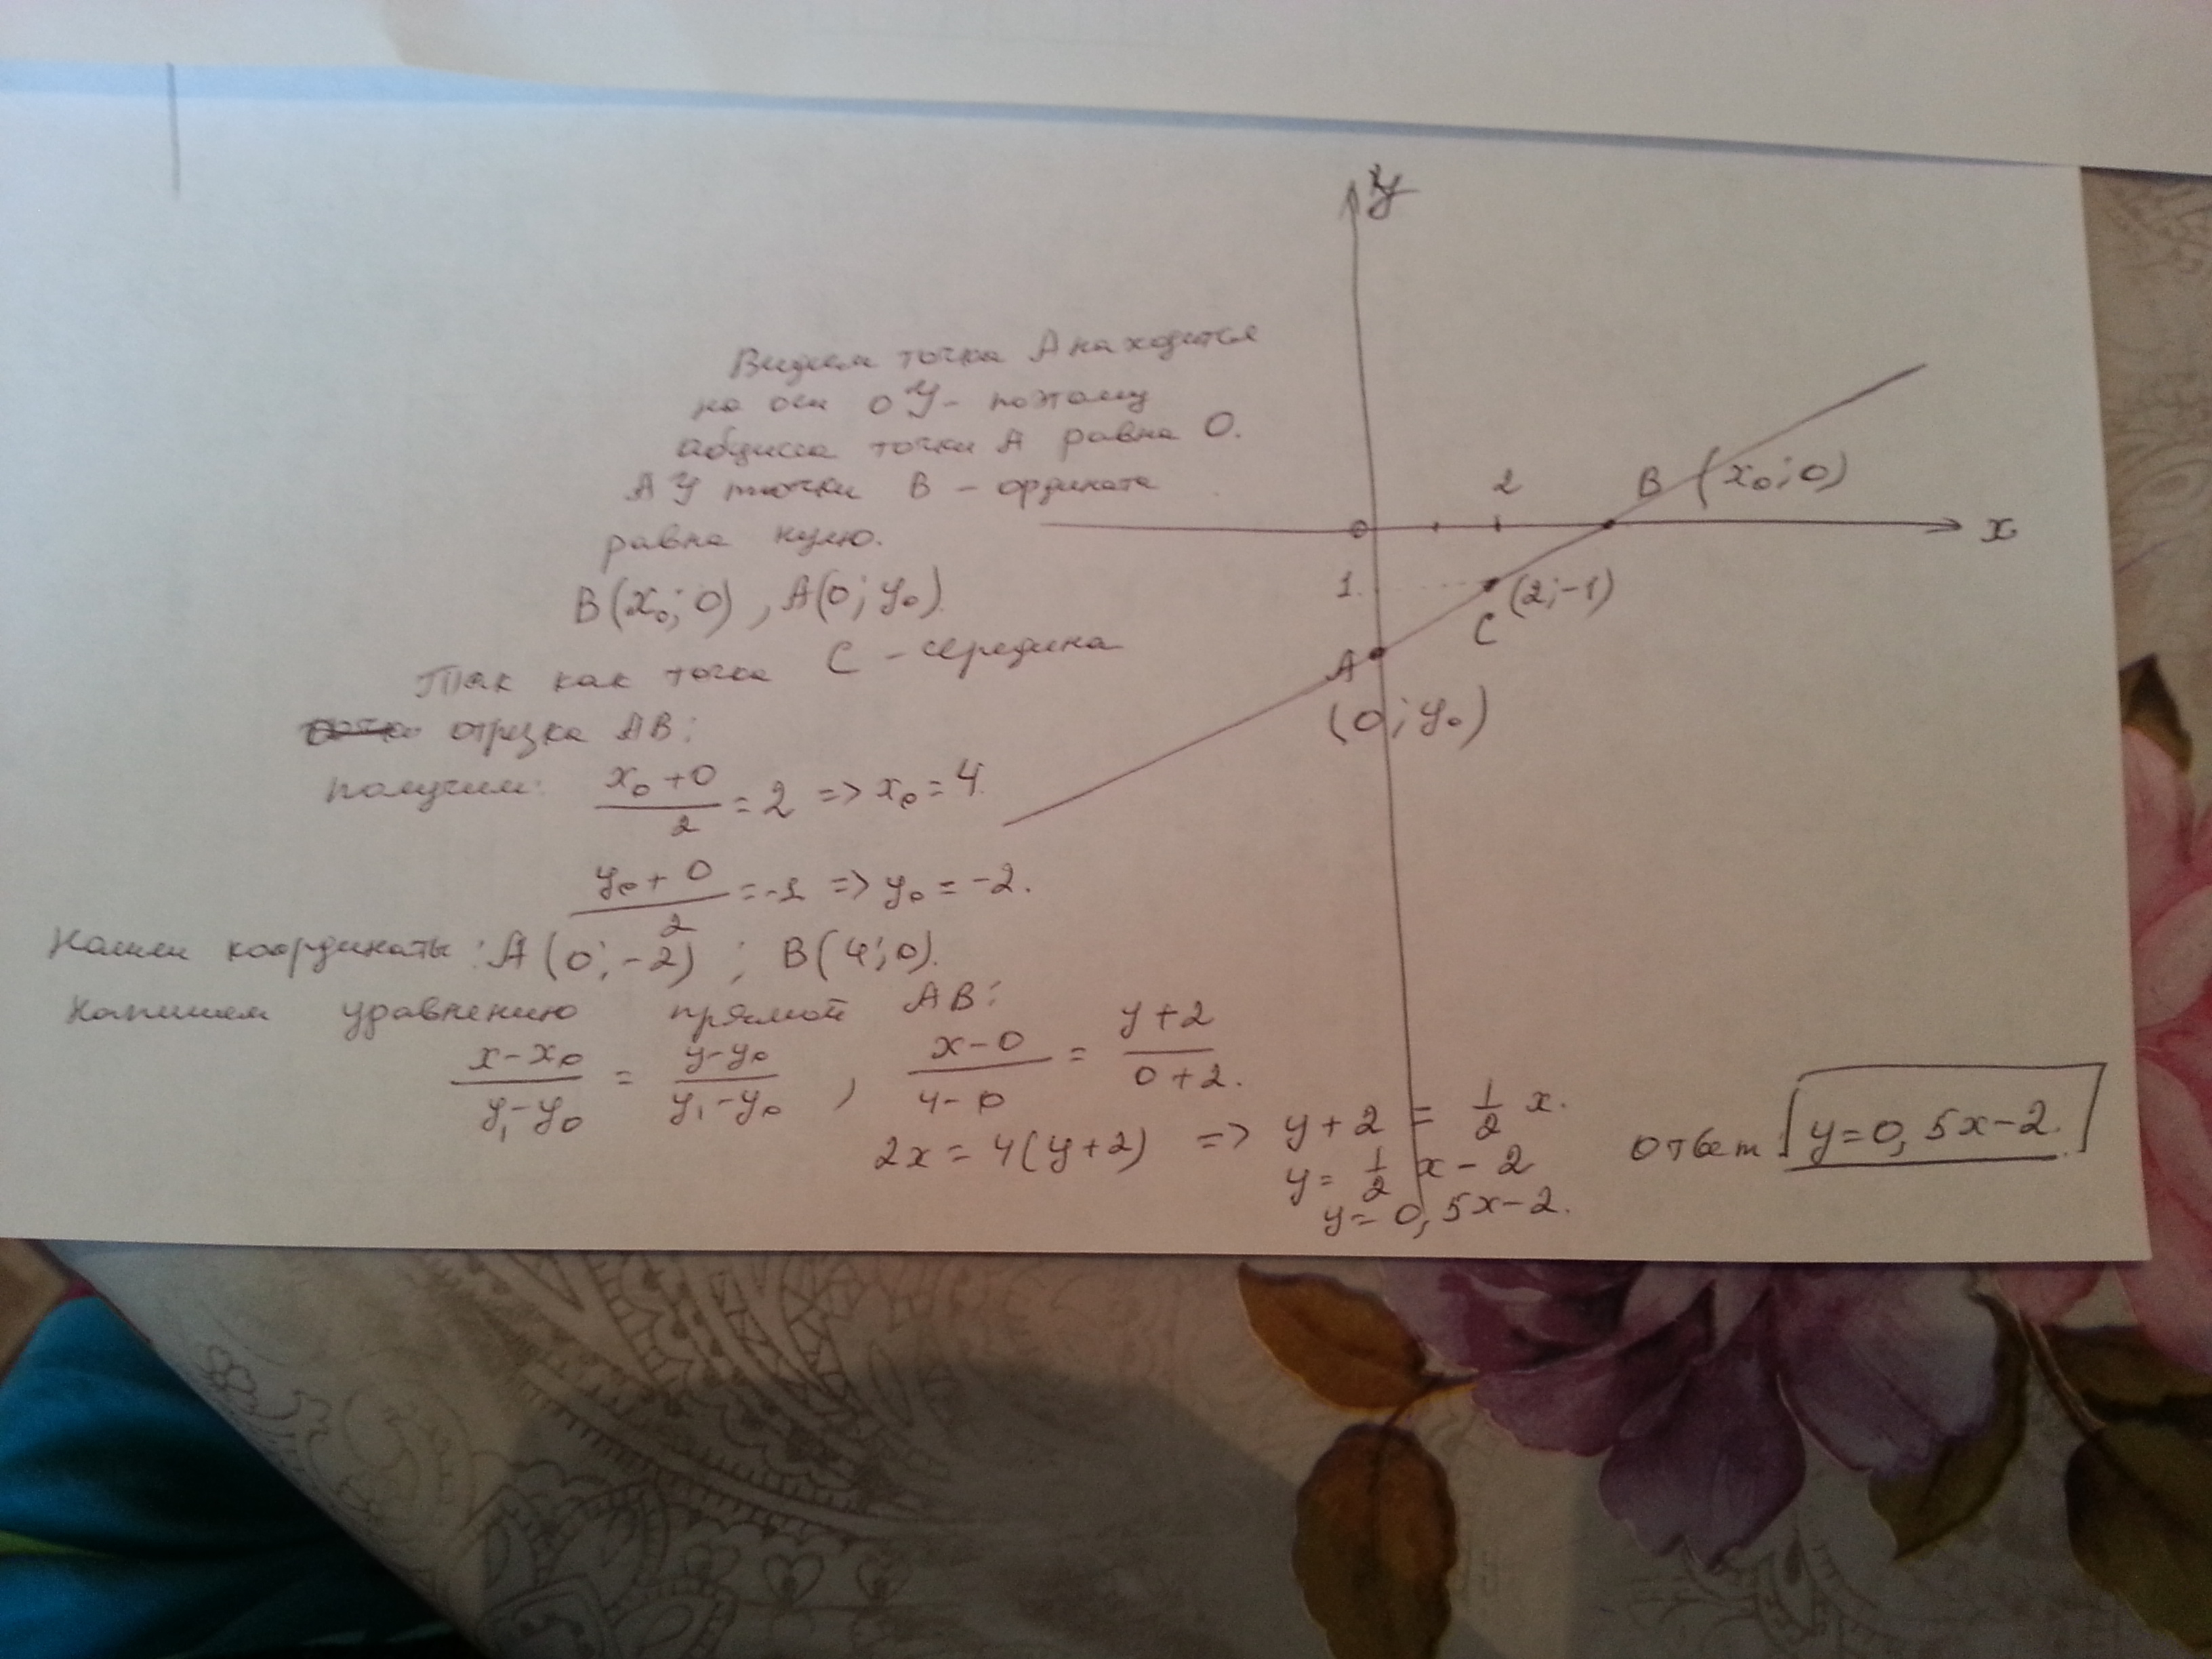 Видим точка А находится
на оси ОУ - поэтому
абцисса точки А равна 0.
А У точки В - ордината
равна нулю.
B(x₀; 0), A(0; y₀).
Так как точка С - середина
отрезка АВ:
получим: (x₀+0)/2 = 2 => x₀ = 4.
(y₀+0)/2 = -1 => y₀ = -2.
Нашли координаты: A(0; -2); B(4; 0).
Напишем уравнению прямой АВ:
(x-x₀)/(y₁-y₀) = (y-y₀)/(y₁-y₀), (x-0)/(4-0) = (y+2)/(0+2).
2x = 4(y+2) => y+2 = 1/2 x.
y = 1/2 x - 2
y = 0,5x-2.
ответ y=0,5x-2.
y
2
B (x₀; 0)
0
x
1
(2; -1)
C
A
(0; y₀)